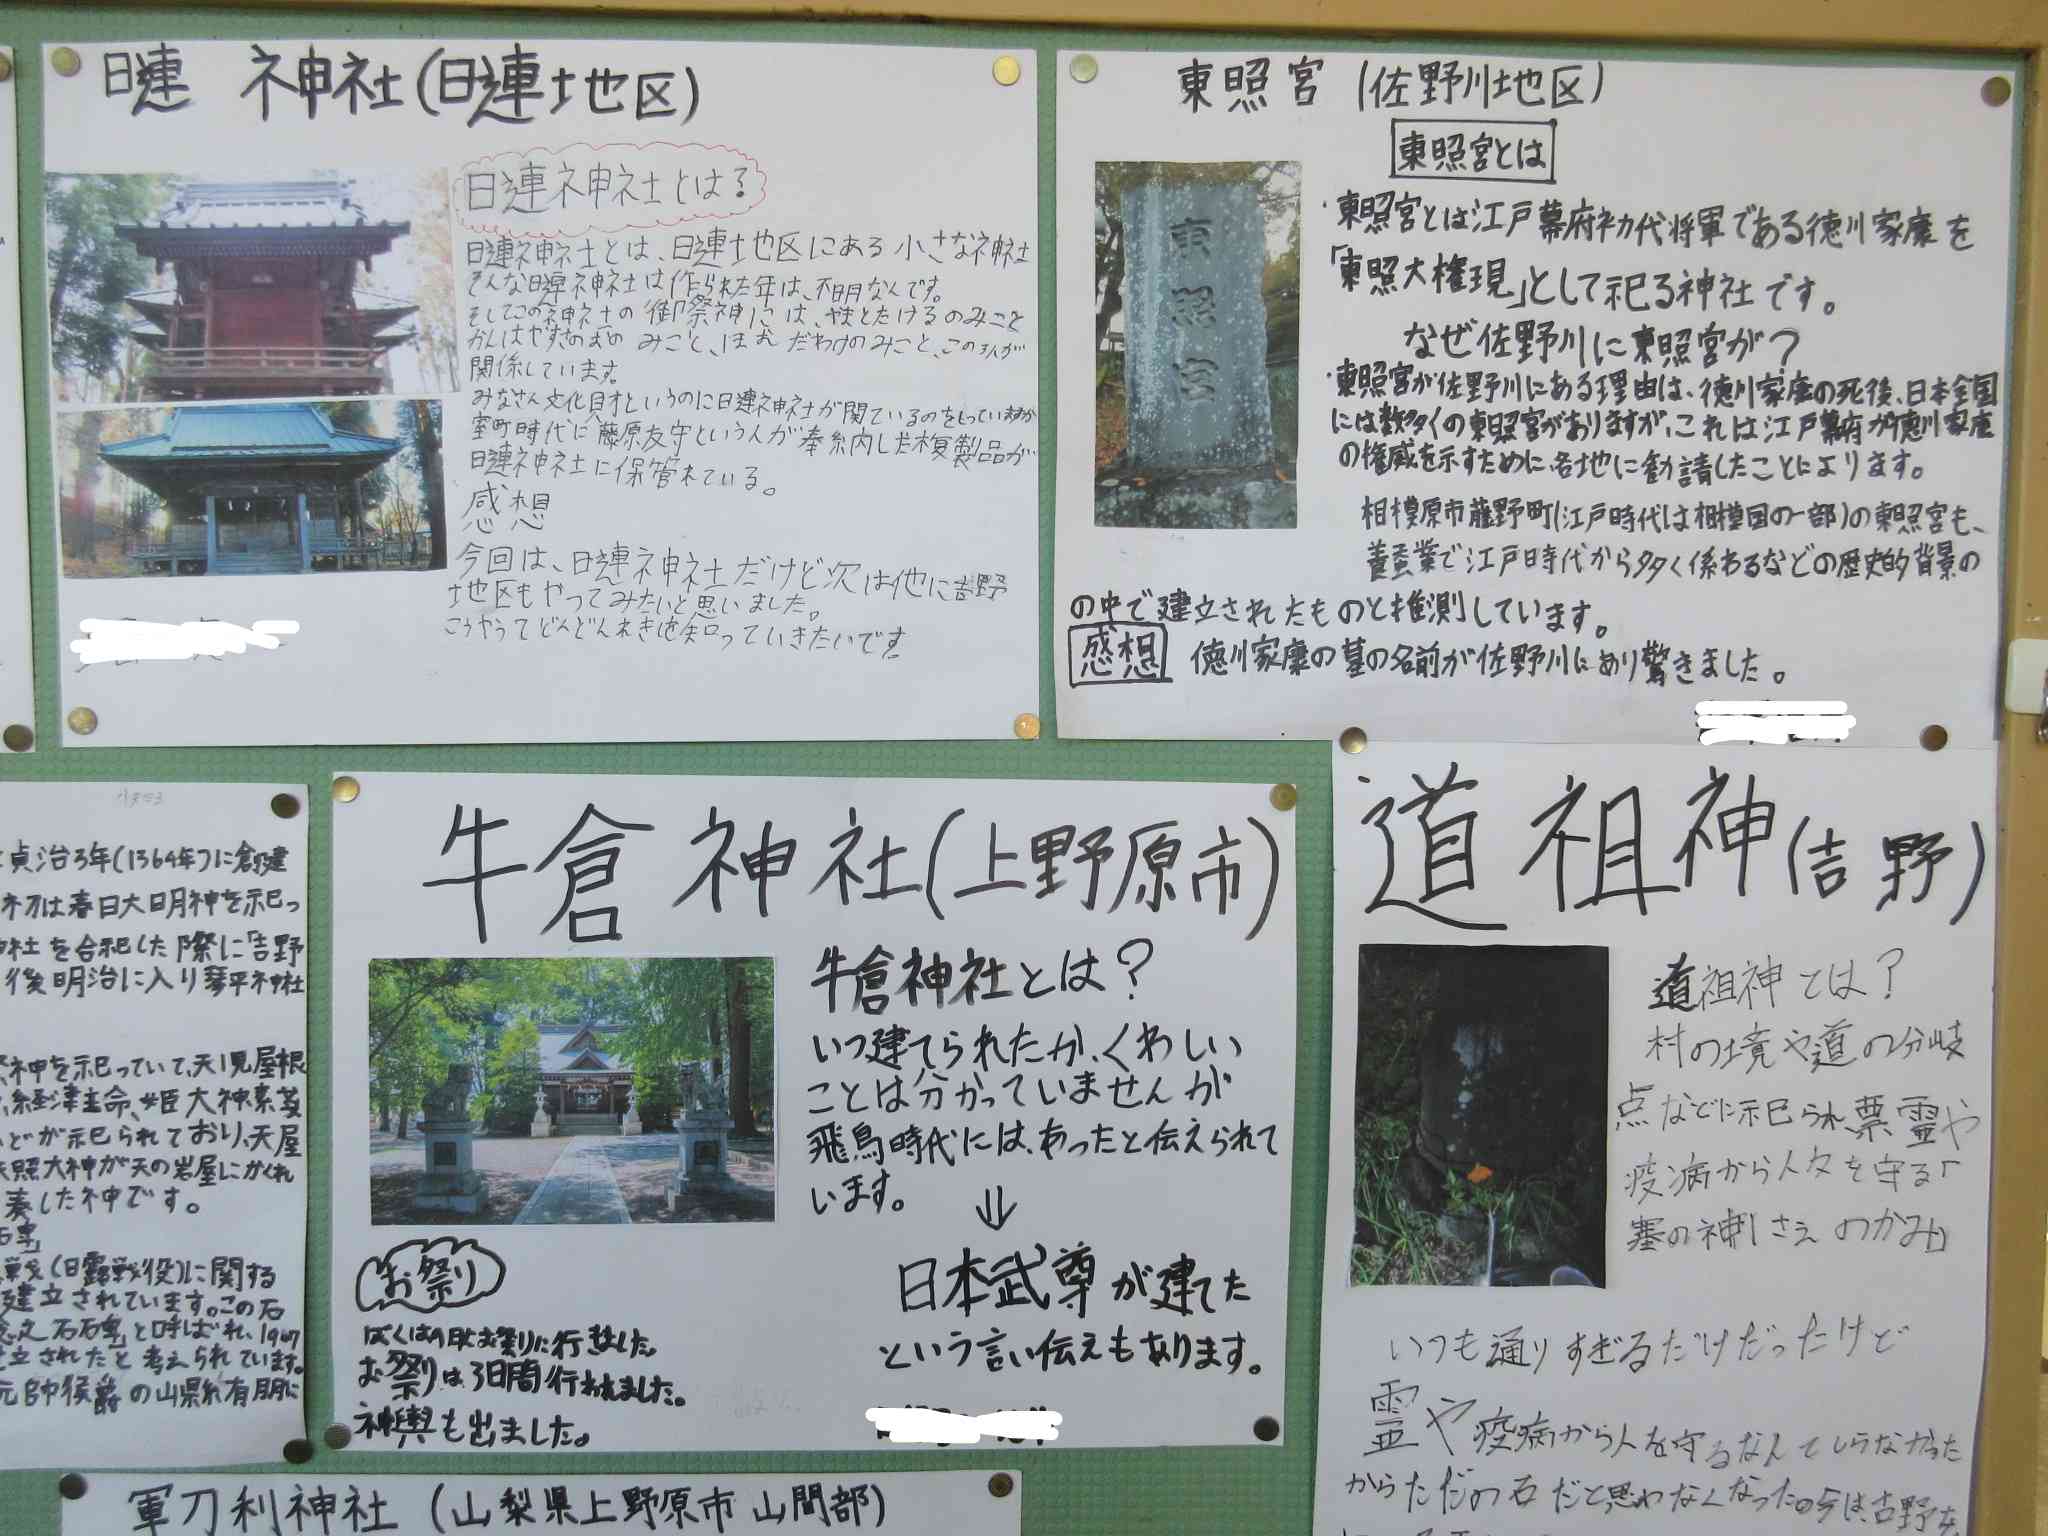 日連 神社(日連地区)
日連神社とはる
日連神社とは、日連地区にある小さな神社
そんな日連神社は作られた年は、不明なんです。
そしてこの神社の御祭神には、やまとたけるのみこと
かんはやすさのおの みこと、ほむだわけのみこと、この3人が
関係しています。
みなさん文化財というのに日連神社が関ているのをしっていますか
室町時代に藤原友守という人が奉納した複製品が
日連神社に保管れている。
感想
今回は、日連神社だけど次は他に吉野
地区もやってみたいと思いました。
こうやってどんどんれきしを知っていきたいです
東照宮 (佐野川地区)
東照宮とは
・東照宮とは江戸幕府初代将軍である徳川家康を
「東照大権現」として祀る神社です。
なぜ佐野川に東照宮が?
・東照宮が佐野川にある理由は、徳川家康の死後、日本全国
には数多くの東照宮がありますが、これは江戸幕府が徳川家康
の権威を示すために各地に勧請したことによります。
相模原市藤野町(江戸時代は相模国の一部)の東照宮も、
養蚕業で江戸時代から多く係わるなどの歴史的背景の
の中で建立されたものと推測しています。
感想 徳川家康の墓の名前が佐野川にあり驚きました。
東照宮
貞治3年(1364年)に創建
初は春日大明神を祀っ
神社を合祀した際に「吉野
後明治に入り琴平神社
祭神を祀っていて、天児屋根
、経津主命、姫大神素盞
などが祀られており、天屋
天照大神が天の岩屋にかくれ
奏した神です。
石碑」
戦(日露戦役)に関する
建立されています。この石
念之石碑」と呼ばれ、1907
立されたと考えられています。
元帥候爵の山県有朋に
牛倉神社(上野原市)
牛倉神社とは?
いつ建てられたか、くわしい
ことは分かっていませんが
飛鳥時代には、あったと伝えられて
います。
⇓
日本武尊が建てた
という言い伝えもあります。
お祭り
ぼくはの秋お祭りに行きました。
お祭りは3日間行われました。
神輿も出ました。
道祖神(吉野)
道祖神とは?
村の境や道の分岐
点などに祀られ、悪霊や
疫病から人々を守る「
塞の神(さえのかみ)」
いつも通りすぎるだけだったけど
霊や疫病から人を守るなんてしらなかった
からただの石だと思わなくなった。今は吉野を
軍刀利神社 (山梨県上野原市 山間部)